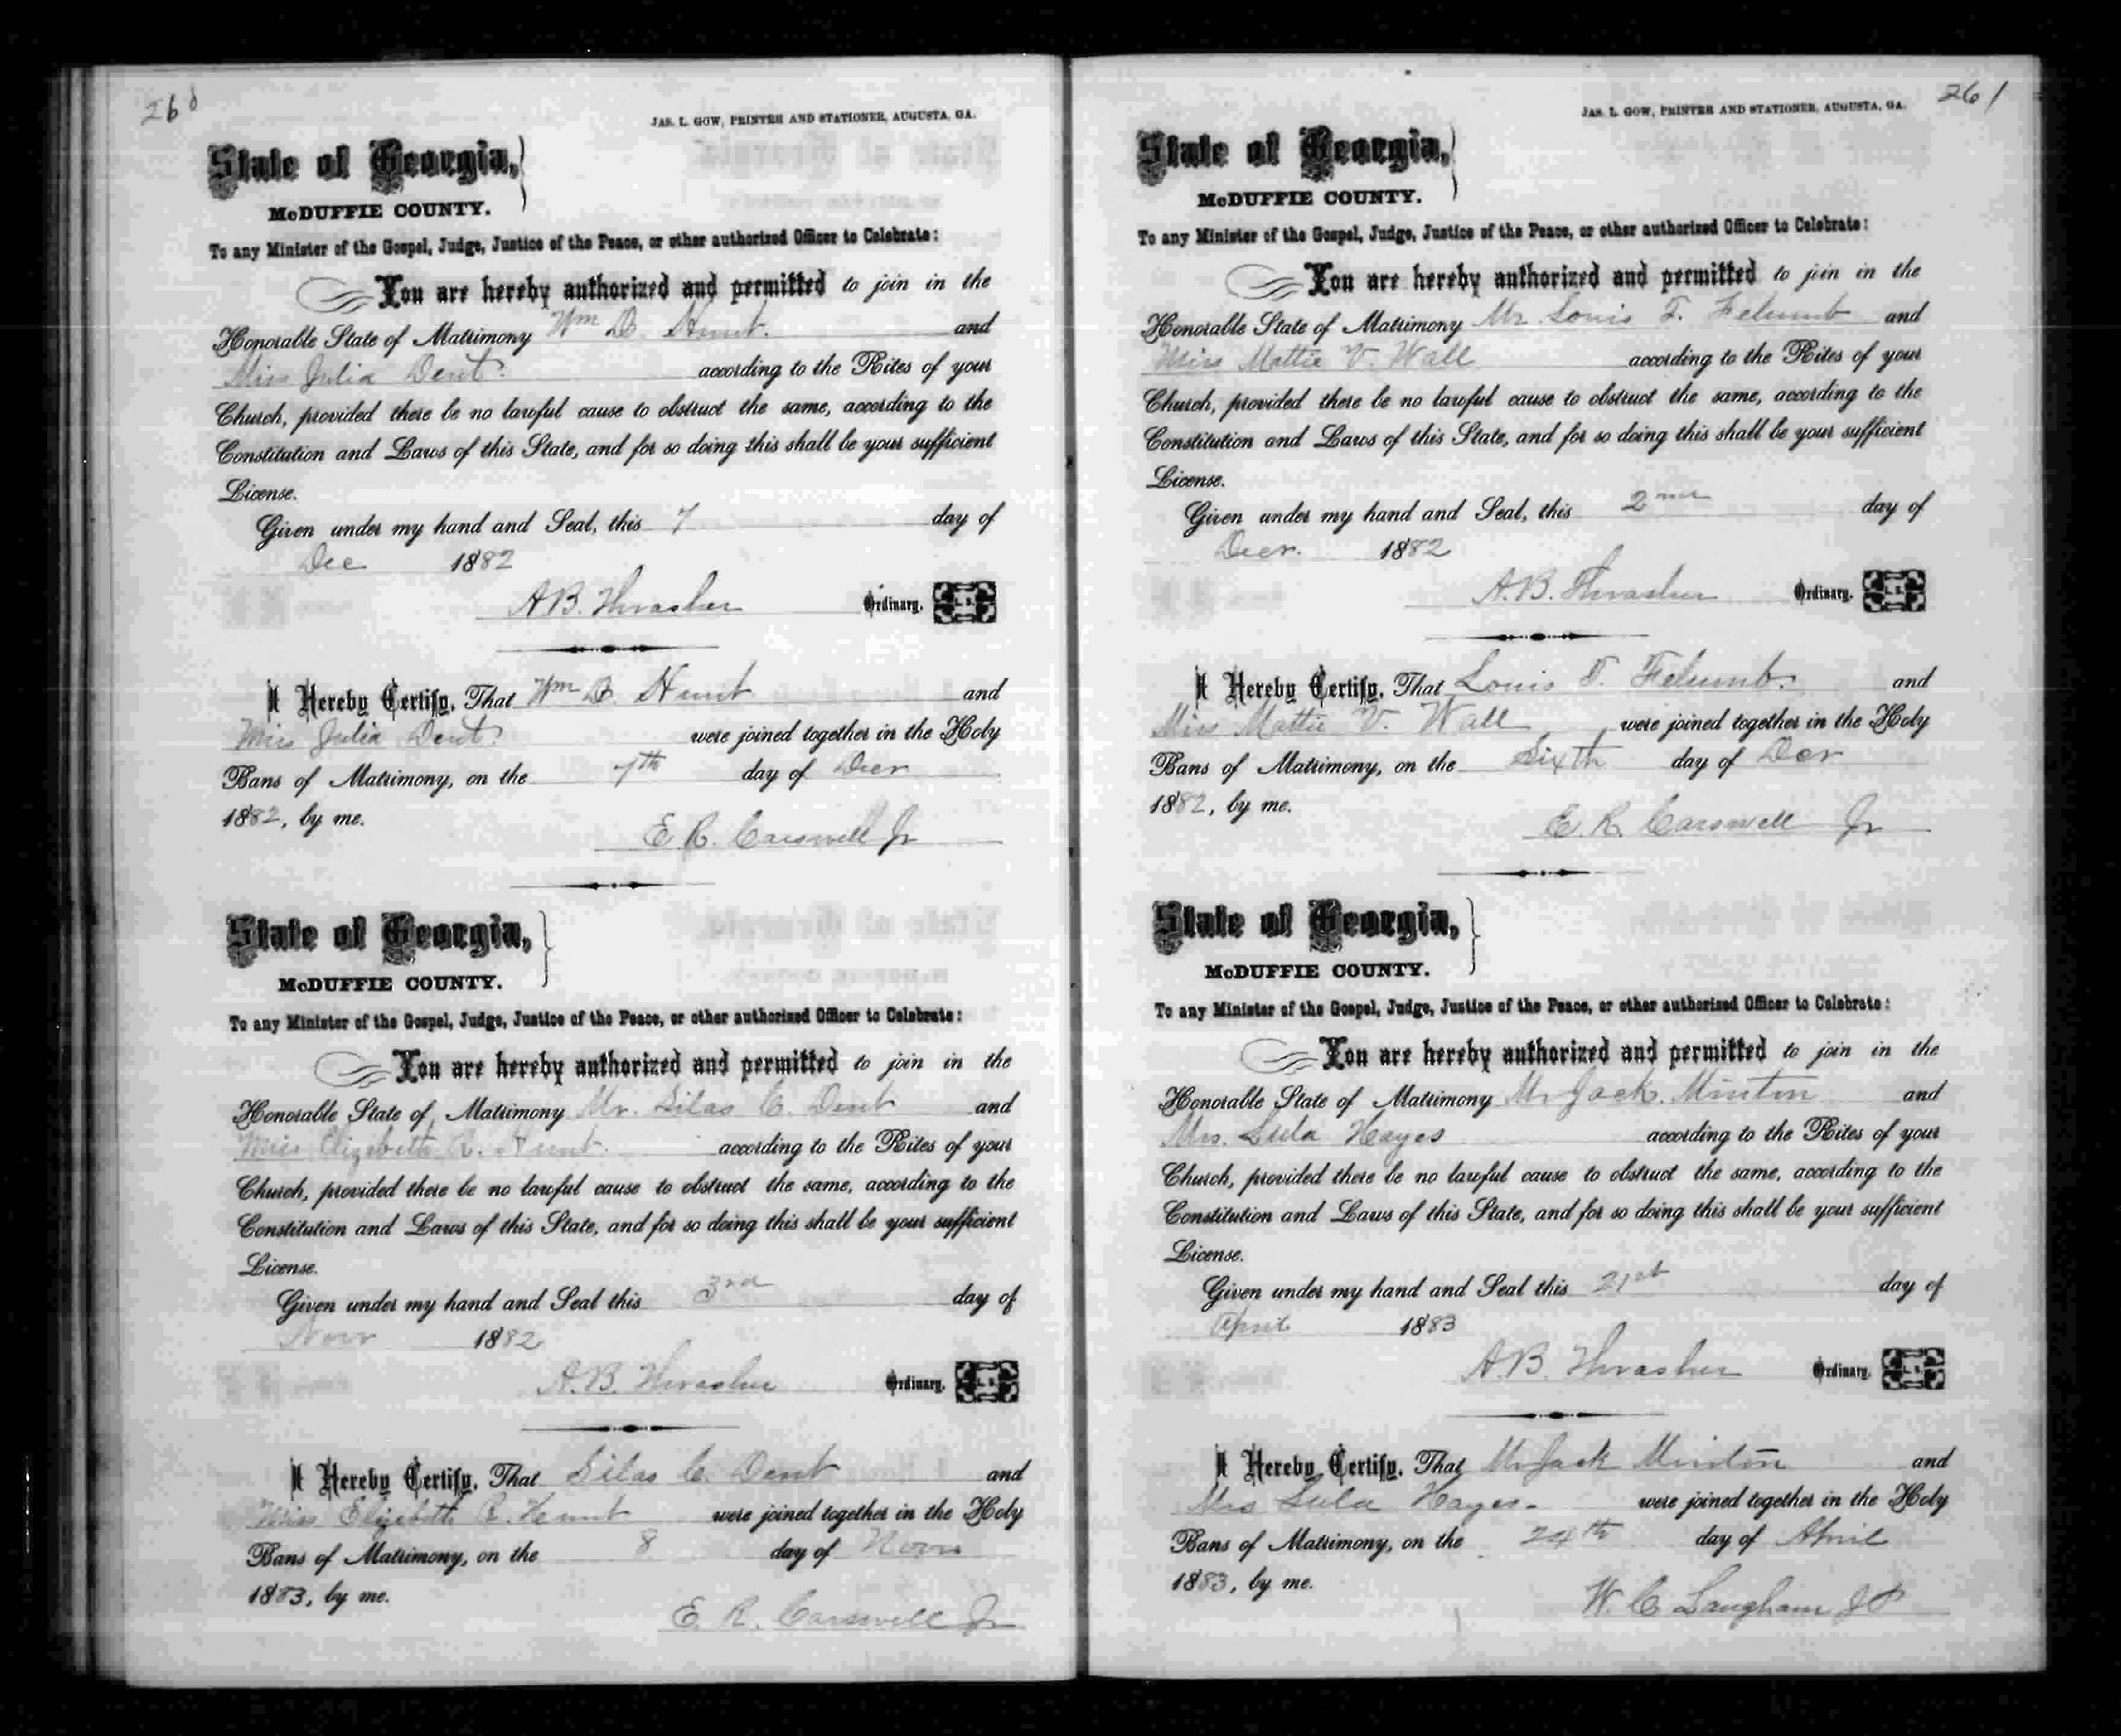 260
JAS. L. GOW, PRINTER AND STATIONER, AUGUSTA, GA.
State of Georgia,
McDUFFIE COUNTY.
To any Minister of the Gospel, Judge, Justice of the Peace, or other authorized Officer to Celebrate:
You are hereby authorized and permitted to join in the
Honorable State of Matrimony Wm D. Hunt. and
Miss Julia Dent. according to the Rites of your
Church, provided there be no lawful cause to obstruct the same, according to the
Constitution and Laws of this State, and for so doing this shall be your sufficient
License.
Given under my hand and Seal, this 7 day of
Dec 1882
A.B. Thrasher Ordinary. L.S.
I Hereby Certify, That Wm D. Hunt and
Miss Julia Dent. were joined together in the Holy
Bans of Matrimony, on the 7th day of Decr
1882, by me.
E. R. Carswell Jr
State of Georgia,
McDUFFIE COUNTY.
To any Minister of the Gospel, Judge, Justice of the Peace, or other authorized Officer to Celebrate:
You are hereby authorized and permitted to join in the
Honorable State of Matrimony Mr. Silas C. Dent and
Miss Elizabeth R. Hunt. according to the Rites of your
Church, provided there be no lawful cause to obstruct the same, according to the
Constitution and Laws of this State, and for so doing this shall be your sufficient
License.
Given under my hand and Seal this 3rd day of
Novr 1882
A.B. Thrasher Ordinary. L.S.
I Hereby Certify, That Silas C. Dent and
Miss Elizabeth R. Hunt were joined together in the Holy
Bans of Matrimony, on the 8 day of Novr
1883, by me.
E. R. Carswell Jr
261
JAS. L. GOW, PRINTER AND STATIONER, AUGUSTA, GA.
State of Georgia,
McDUFFIE COUNTY.
To any Minister of the Gospel, Judge, Justice of the Peace, or other authorized Officer to Celebrate:
You are hereby authorized and permitted to join in the
Honorable State of Matrimony Mr. Louis T. Felumb and
Miss Mattie V. Wall according to the Rites of your
Church, provided there be no lawful cause to obstruct the same, according to the
Constitution and Laws of this State, and for so doing this shall be your sufficient
License.
Given under my hand and Seal, this 2nd day of
Decr. 1882
A.B. Thrasher Ordinary. L.S.
I Hereby Certify, That Louis T. Felumb. and
Miss Mattie V. Wall were joined together in the Holy
Bans of Matrimony, on the Sixth day of Decr
1882, by me.
E. R. Carswell Jr
State of Georgia,
McDUFFIE COUNTY.
To any Minister of the Gospel, Judge, Justice of the Peace, or other authorized Officer to Celebrate:
You are hereby authorized and permitted to join in the
Honorable State of Matrimony Mr Jack. Minton and
Mrs. Lula Hayes according to the Rites of your
Church, provided there be no lawful cause to obstruct the same, according to the
Constitution and Laws of this State, and for so doing this shall be your sufficient
License.
Given under my hand and Seal this 21st day of
April 1883
A.B. Thrasher Ordinary. L.S.
I Hereby Certify, That Mr Jack Minton and
Mrs Lula Hayes- were joined together in the Holy
Bans of Matrimony, on the 24th day of April
1883, by me.
W. C Langham JP